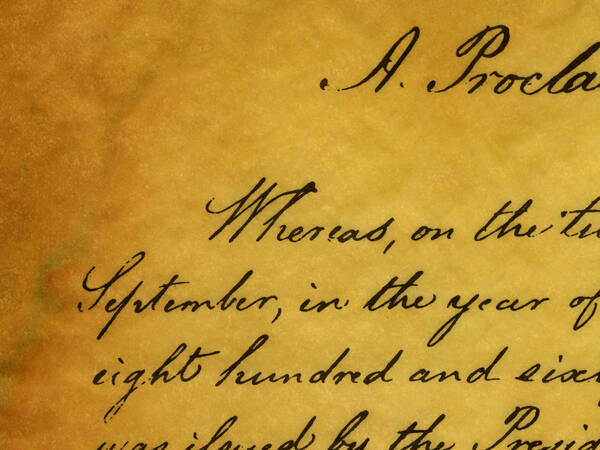 A. Procla
Whereas, on the tw
September, in the year of
eight hundred and sixty
was issued by the Presid